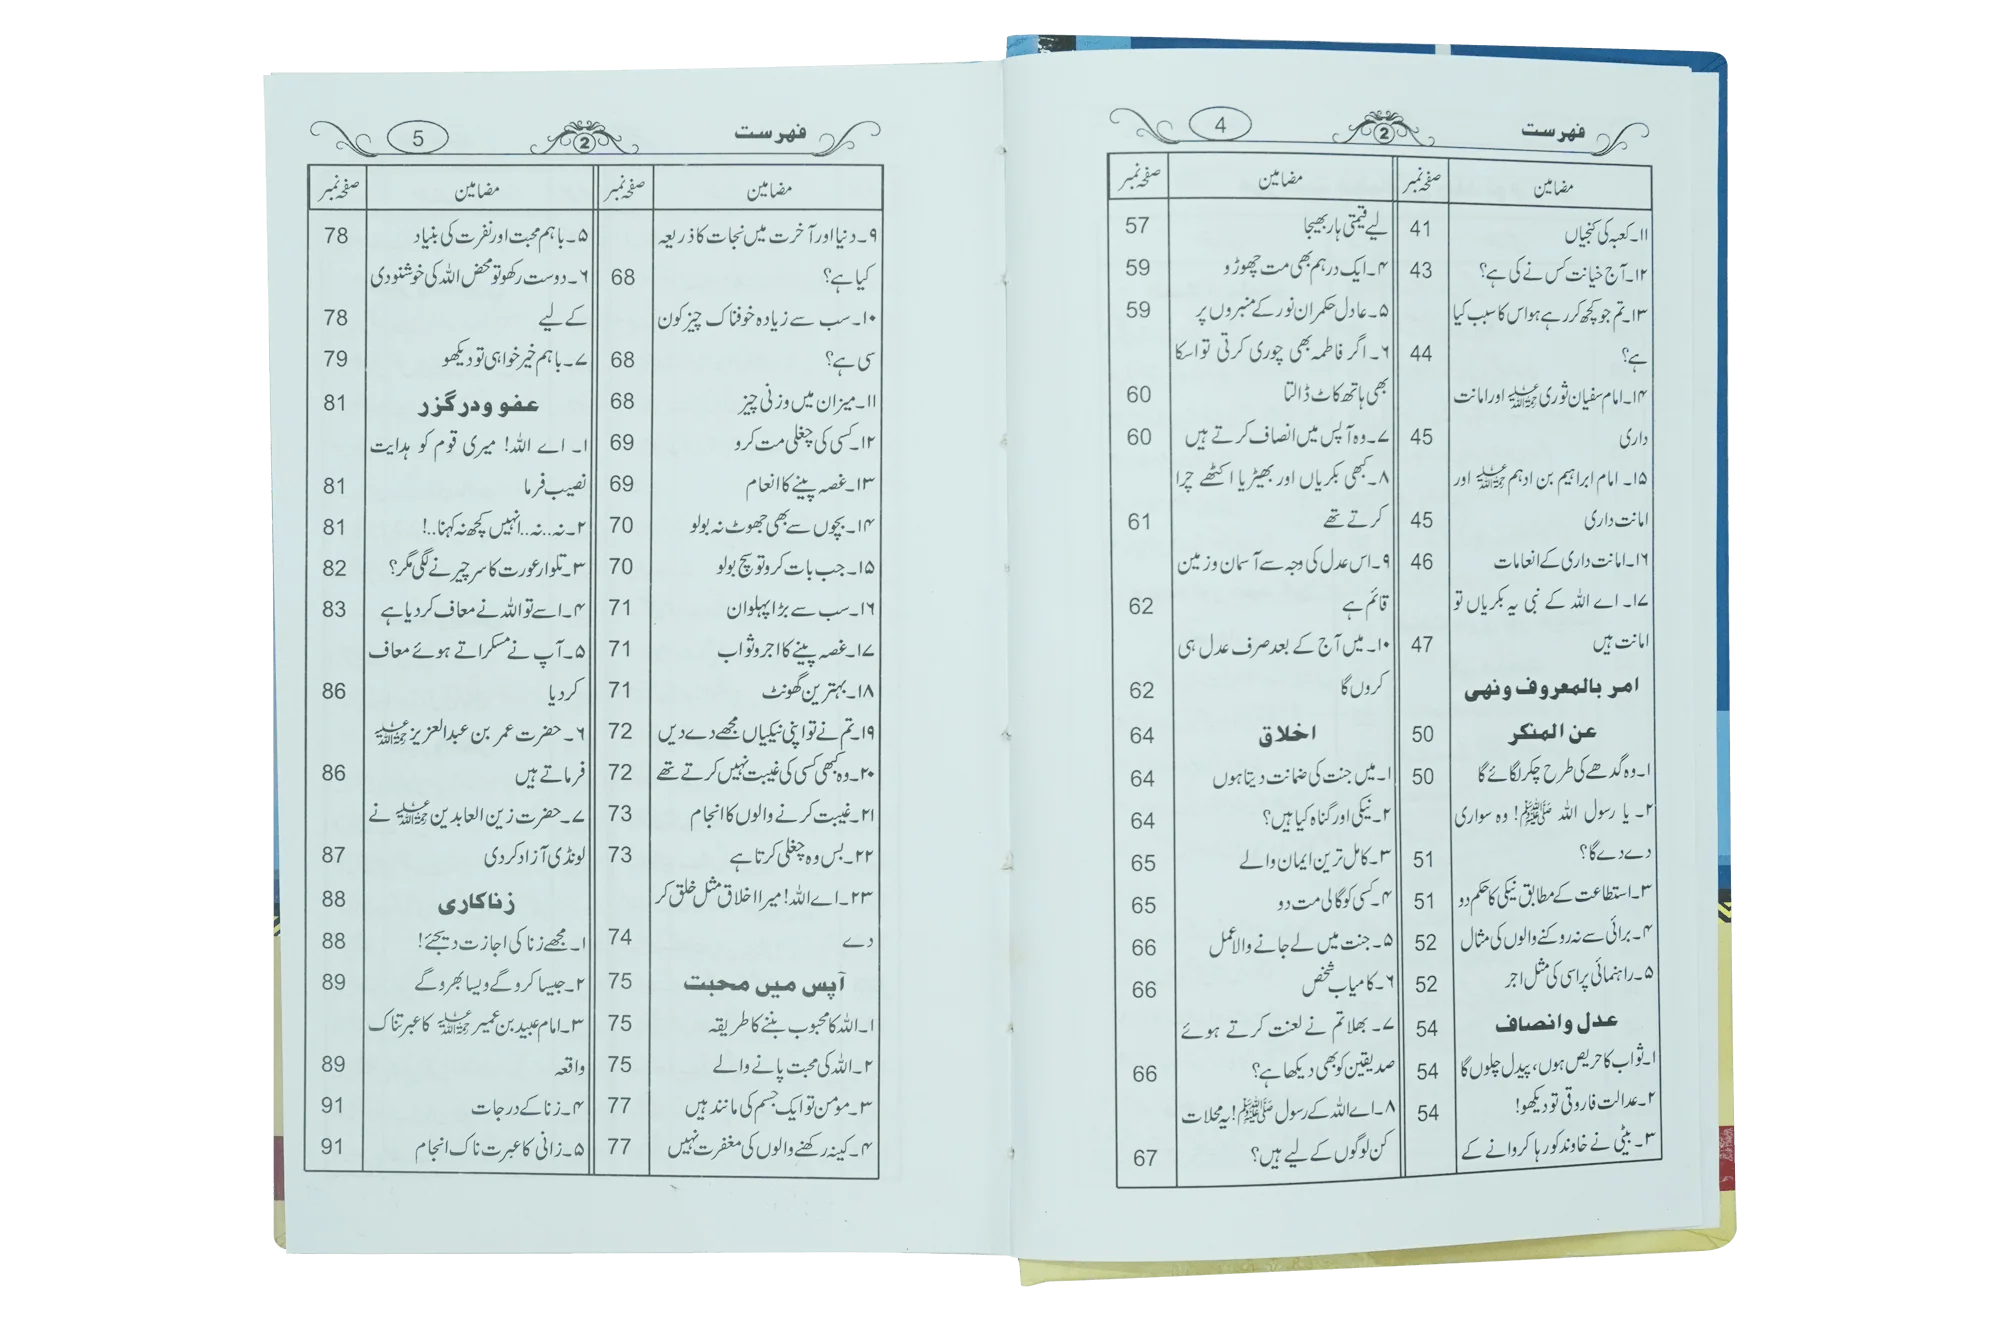 فہرست 2 4
مضامین صفحہ نمبر
۱۱۔ کعبہ کی کنجیاں 41
۱۲۔ آج خیانت کس نے کی ہے؟ 43
۱۳۔ تم جو کچھ کر رہے ہو اس کا سبب کیا
ہے؟ 44
۱۴۔ امام سفیان ثوری رحمۃ اللہ علیہ اور امانت
داری 45
۱۵۔ امام ابراہیم بن ادہم رحمۃ اللہ علیہ اور
امانت داری 45
۱۶۔ امانت داری کے انعامات 46
۱۷۔ اے اللہ کے نبی یہ بکریاں تو
امانت ہیں 47
امر بالمعروف ونهی
عن المنکر 50
۱۔ وہ گدھے کی طرح چکر لگائے گا 50
۲۔ یا رسول اللہ ﷺ! وہ سواری
دے دے گا؟ 51
۳۔ استطاعت کے مطابق نیکی کا حکم دو 51
۴۔ برائی سے نہ روکنے والوں کی مثال 52
۵۔ راہنمائی پر اسی کی مثل اجر 52
عدل وانصاف 54
۱۔ ثواب کا حریص ہوں، پیدل چلوں گا 54
۲۔ عدالت فاروقی تو دیکھو! 54
۳۔ بیٹی نے خاوند کو رہا کروانے کے
مضامین صفحہ نمبر
لیے قیمتی ہار بھیجا 57
۴۔ ایک درہم بھی مت چھوڑو 59
۵۔ عادل حکمران نور کے منبروں پر 59
۶۔ اگر فاطمہ بھی چوری کرتی تو اسکا
بھی ہاتھ کاٹ ڈالتا 60
۷۔ وہ آپس میں انصاف کرتے ہیں 60
۸۔ کبھی بکریاں اور بھیڑیا اکٹھے چرا
کرتے تھے 61
۹۔ اس عدل کی وجہ سے آسمان و زمین
قائم ہے 62
۱۰۔ میں آج کے بعد صرف عدل ہی
کروں گا 62
اخلاق 64
۱۔ میں جنت کی ضمانت دیتا ہوں 64
۲۔ نیکی اور گناہ کیا ہیں؟ 64
۳۔ کامل ترین ایمان والے 65
۴۔ کسی کو گالی مت دو 65
۵۔ جنت میں لے جانے والا عمل 66
۶۔ کامیاب شخص 66
۷۔ بھلا تم نے لعنت کرتے ہوئے
صدیقین کو بھی دیکھا ہے؟ 66
۸۔ اے اللہ کے رسول ﷺ! یہ محلات
کن لوگوں کے لیے ہیں؟ 67
فہرست 2 5
مضامین صفحہ نمبر
۹۔ دنیا اور آخرت میں نجات کا ذریعہ
کیا ہے؟ 68
۱۰۔ سب سے زیادہ خوفناک چیز کون
سی ہے؟ 68
۱۱۔ میزان میں وزنی چیز 68
۱۲۔ کسی کی چغلی مت کرو 69
۱۳۔ غصہ پینے کا انعام 69
۱۴۔ بچوں سے بھی جھوٹ نہ بولو 70
۱۵۔ جب بات کرو تو سچ بولو 70
۱۶۔ سب سے بڑا پہلوان 71
۱۷۔ غصہ پینے کا اجر و ثواب 71
۱۸۔ بہترین گھونٹ 71
۱۹۔ تم نے تو اپنی نیکیاں مجھے دے دیں 72
۲۰۔ وہ کبھی کسی کی غیبت نہیں کرتے تھے 72
۲۱۔ غیبت کرنے والوں کا انجام 73
۲۲۔ بس وہ چغلی کرتا ہے 73
۲۳۔ اے اللہ! میرا اخلاق مثل خلق کر
دے 74
آپس میں محبت 75
۱۔ اللہ کا محبوب بننے کا طریقہ 75
۲۔ اللہ کی محبت پانے والے 75
۳۔ مومن تو ایک جسم کی مانند ہیں 77
۴۔ کینہ رکھنے والوں کی مغفرت نہیں 77
مضامین صفحہ نمبر
۵۔ باہم محبت اور نفرت کی بنیاد 78
۶۔ دوست رکھو تو محض اللہ کی خوشنودی
کے لیے 78
۷۔ باہم خیر خواہی تو دیکھو 79
عفو ودرگزر 81
۱۔ اے اللہ! میری قوم کو ہدایت
نصیب فرما 81
۲۔ نہ.. نہ.. انہیں کچھ نہ کہنا..! 81
۳۔ تلوار عورت کا سر چیرنے لگی مگر؟ 82
۴۔ اسے تو اللہ نے معاف کر دیا ہے 83
۵۔ آپ نے مسکراتے ہوئے معاف
کر دیا 86
۶۔ حضرت عمر بن عبدالعزیز رحمۃ اللہ علیہ
فرماتے ہیں 86
۷۔ حضرت زین العابدین رحمۃ اللہ علیہ نے
لونڈی آزاد کر دی 87
زناکاری 88
۱۔ مجھے زنا کی اجازت دیجئے! 88
۲۔ جیسا کرو گے ویسا بھرو گے 89
۳۔ امام عبید بن عمیر رحمۃ اللہ علیہ کا عبرتناک
واقعہ 89
۴۔ زنا کے درجات 91
۵۔ زانی کا عبرت ناک انجام 91